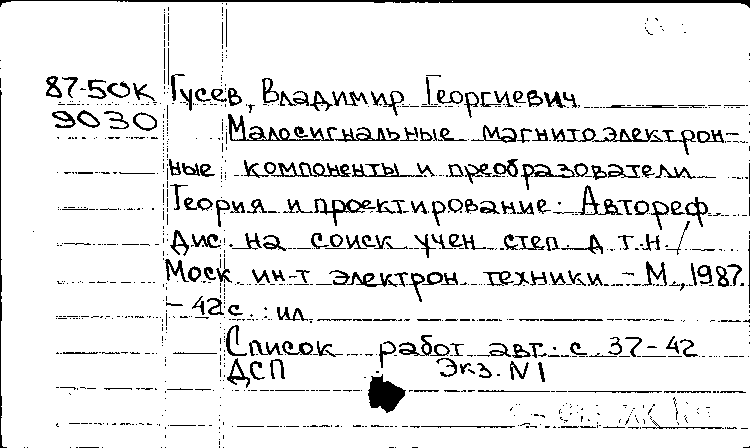 87-50К Гусев, Владимир Георгиевич
9030 Малосигнальные магнитоэлектрон-
ные компоненты и преобразователи
Теория и проектирование: Автореф
дис. на соиск учен степ. д.т.н /
Моск ин-т электрон техники - М., 1987.
- 42 с. : ил
Список работ авт. с. 37-42
ДСП Экз. N1